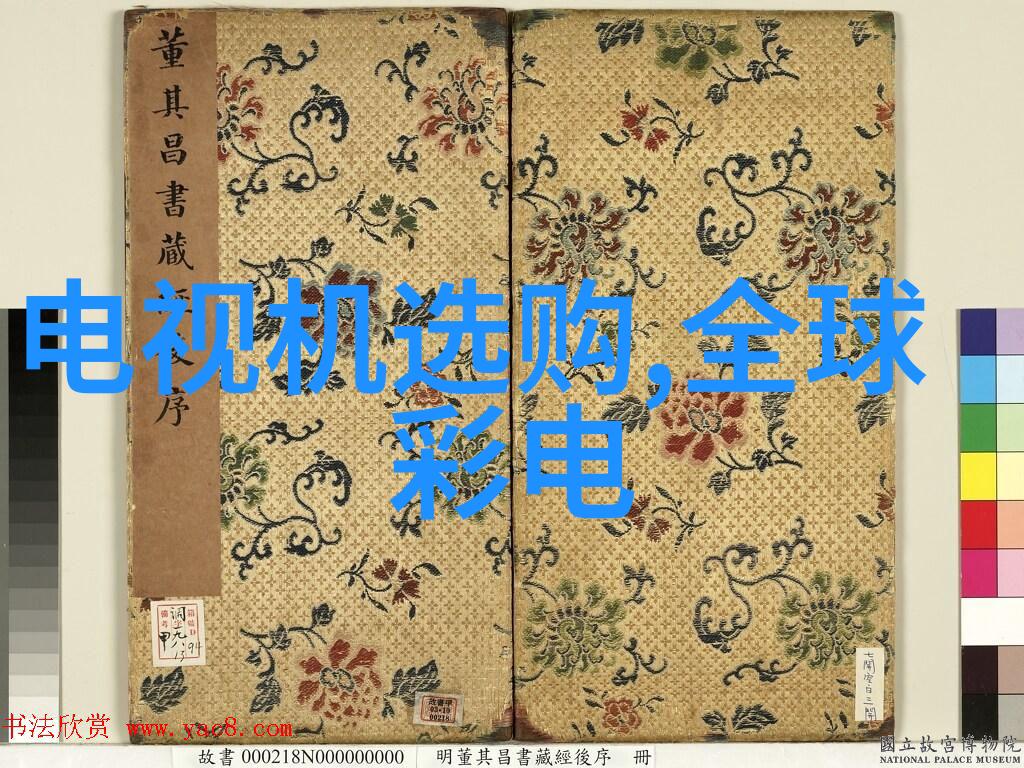 董其昌書藏經後序
电视机选购,全球
彩电
故書甲
03-10
00218
七開空白三開
书法欣赏 www.yac8.com
故書 000218N000000000
明董其昌書藏經後序 冊
國立故宮博物院
NATIONAL PALACE MUSEUM